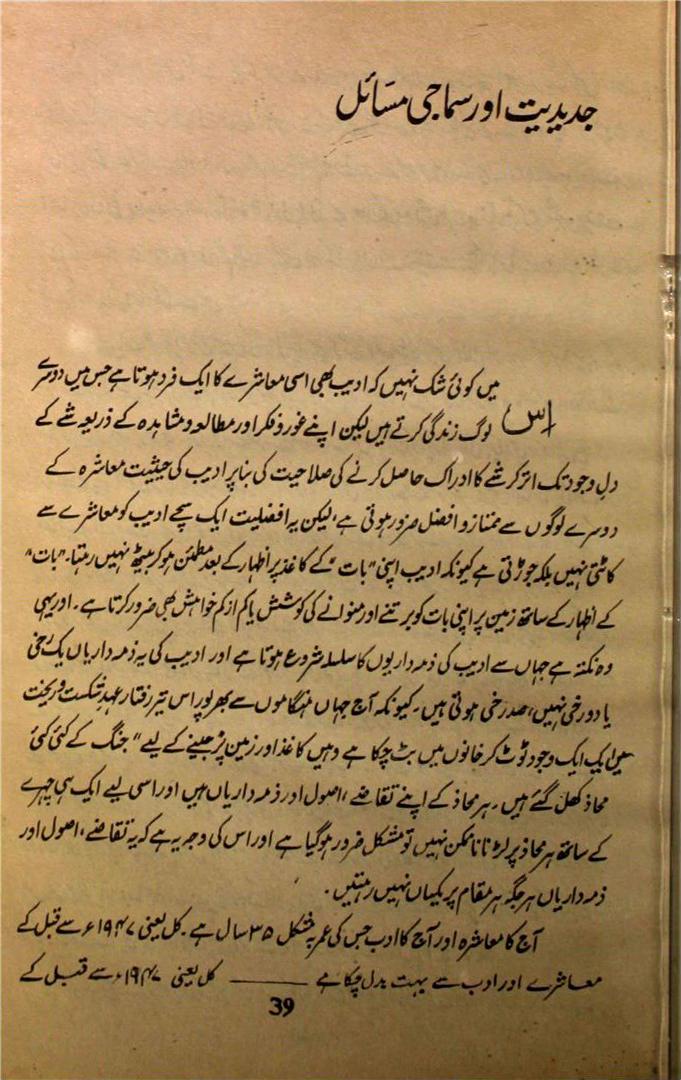 جدیدیت اور سماجی مسائل
اس میں کوئی شک نہیں کہ ادیب بھی اسی معاشرے کا ایک فرد ہوتا ہے جس میں دوسرے
لوگ زندگی کرتے ہیں لیکن اپنے غور و فکر اور مطالعہ و مشاہدہ کے ذریعہ شے کے
دلِ وجود تک اتر کر شے کا ادراک حاصل کرنے کی صلاحیت کی بنا پر ادیب کی حیثیت معاشرہ کے
دوسرے لوگوں سے ممتاز و افضل ضرور ہوتی ہے، لیکن یہ افضلیت ایک سچے ادیب کو معاشرے سے
کاٹتی نہیں بلکہ جوڑتی ہے کیونکہ ادیب اپنی "بات" کے کاغذ پر اظہار کے بعد مطمئن ہو کر بیٹھ نہیں رہتا۔ "بات"
کے اظہار کے ساتھ زمین پر اپنی بات کو برتنے اور منوانے کی کوشش یا کم از کم خواہش بھی ضرور کرتا ہے۔ اور یہی
وہ نکتہ ہے جہاں سے ادیب کی ذمہ داریوں کا سلسلہ شروع ہوتا ہے اور ادیب کی یہ ذمہ داریاں یک رخی
یا دو رخی نہیں، صد رخی ہوتی ہیں۔ کیونکہ آج جہاں ہنگاموں سے بھرپور اس تیز رفتار عہدِ شکست و ریخت
میں ایک ایک وجود ٹوٹ کر خانوں میں بٹ چکا ہے وہیں کاغذ اور زمین پر جینے کے لیے "جنگ کے کئی کئی
محاذ کھل گئے ہیں۔ ہر محاذ کے اپنے تقاضے، اصول اور ذمہ داریاں ہیں اور اسی لیے ایک ہی چہرے
کے ساتھ ہر محاذ پر لڑنا ناممکن نہیں تو مشکل ضرور ہو گیا ہے اور اس کی وجہ یہ ہے کہ یہ تقاضے، اصول اور
ذمہ داریاں ہر جگہ ہر مقام پر یکساں نہیں رہتیں۔
آج کا معاشرہ اور آج کا ادب جس کی عمر بہ مشکل ۳۵ سال ہے۔ کل یعنی ۱۹۴۷ء سے قبل کے
معاشرے اور ادب سے بہت بدل چکا ہے ——— کل یعنی ۱۹۴۷ء سے قبل کے
39